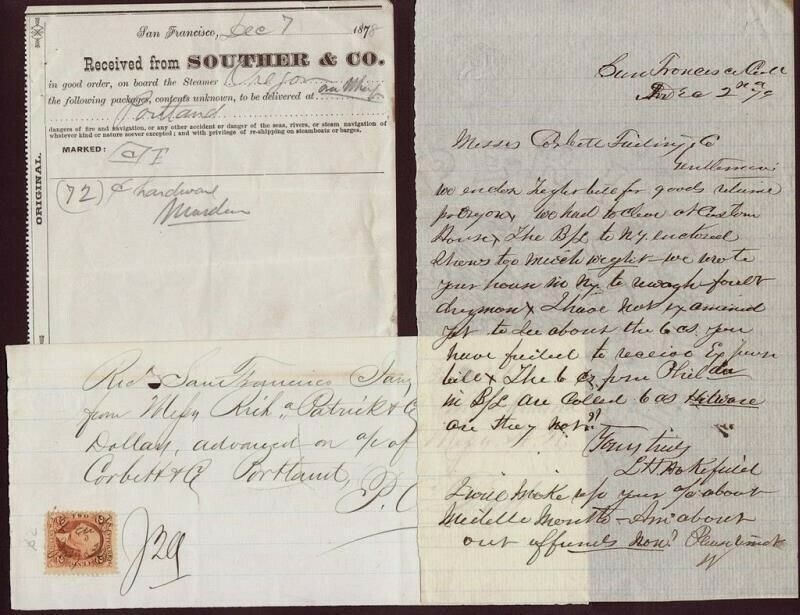 San Francisco, Dec 7 1878
Received from SOUTHER & CO.
in good order, on board the Steamer Oregon
the following packages, contents unknown, to be delivered at on Wharf
Portland
dangers of fire and navigation, or any other accident or danger of the seas, rivers, or steam navigation of
whatever kind or nature soever excepted; and with privilege of re-shipping on steamboats or barges.
MARKED: C/F
(72) hardware
Marden
ORIGINAL.
Recd San Francisco Jany
from Messrs Kirkpatrick & Co
Dollars, advanced on a/c of
Corbett & Co Portland,
P.
$29
TWO
San Francisco Cal
Dec 2nd /79
Messrs Corbett Failing & Co
Gentlemen
we enclose bill for goods
pr Oregon. we had to clear at Custom
House & The B/L to N.Y. enclosed
shows too much weight we wrote
your house in NY to weigh
draymen & I have not examined
yet to see about the 6 cs. you
have failed to receive Ex
bill & The 6 cs from Phila
in B/L are called 6 cs Hdware
are they not?
Yours truly
Wakefield
I will make up your a/c about
Middle Month - Am about
out of funds now? Please remit
W